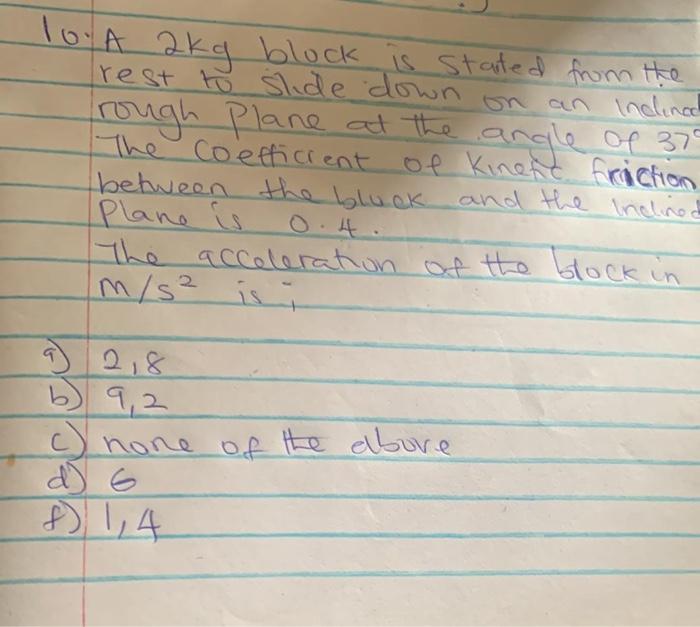 10. A 2kg block is stated from the
rest to slide down on an inclined
rough plane at the angle of 37°
The coefficient of kinetic friction
between the block and the inclined
Plane is 0.4.
The acceleration of the block in
m/s² is ;
a) 2,8
b) 9,2
c) none of the above
d) 6
f) 1,4